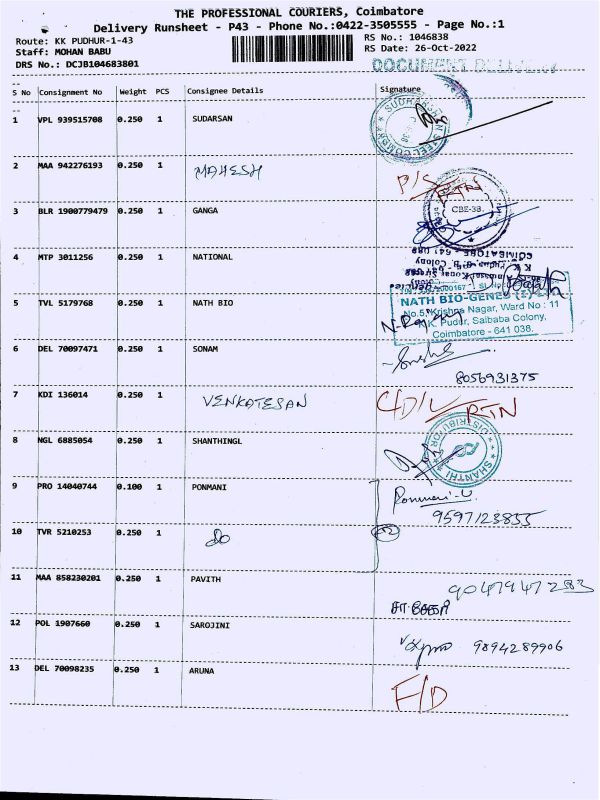 THE PROFESSIONAL COURIERS, Coimbatore
Delivery Runsheet - P43 - Phone No.:0422-3505555 - Page No.:1
Route: KK PUDHUR-1-43
Staff: MOHAN BABU
DRS No.: DCJB104683801
RS No.: 1046838
RS Date: 26-Oct-2022
S No Consignment No Weight PCS Consignee Details Signature
1 VPL 939515708 0.250 1 SUDARSAN
2 MAA 942276193 0.250 1 MAHESH
RTN
3 BLR 1900779479 0.250 1 GANGA
CBE-38.
4 MTP 3011256 0.250 1 NATIONAL
COIMBATORE
5 TVL 5179768 0.250 1 NATH BIO
NATH BIO-GENES (I)
No.5, Krishna Nagar, Ward No : 11
K.K. Pudur, Saibaba Colony,
Coimbatore - 641 038.
6 DEL 70097471 0.250 1 SONAM
8056931375
7 KDI 136014 0.250 1 VENKATESAN
RTN
8 NGL 6885054 0.250 1 SHANTHINGL
SHANTHI DISTRIBUTOR
9 PRO 14040744 0.100 1 PONMANI
Ponmani-U
9597123855
10 TVR 5210253 0.250 1 do
11 MAA 858230201 0.250 1 PAVITH
9047947283
12 POL 1907660 0.250 1 SAROJINI
9894289906
13 DEL 70098235 0.250 1 ARUNA
F/D